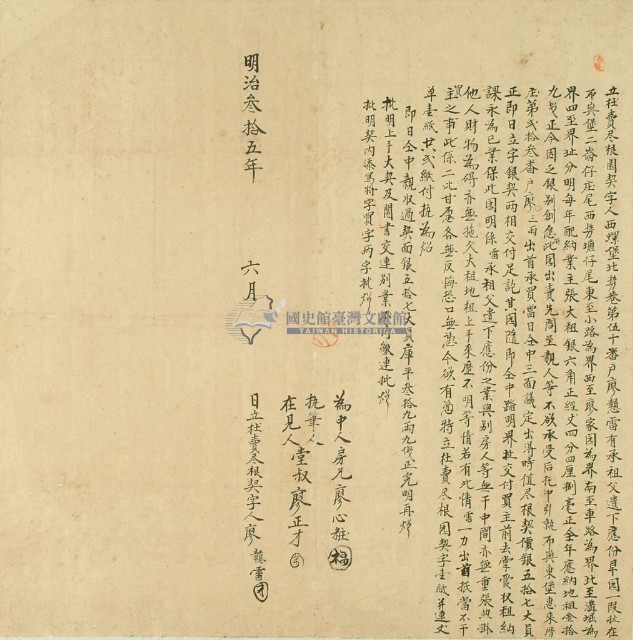 立杜賣尽根園契字人西螺堡北勢卷第五十番戶廖懇雷有承祖父遺下應份旱园一段址在
布與堡二崙仔庄尾西勢壇仔尾東至小路為界西至廖家园為界南至車路為界北至溝堀為
界四至界址分明每年配納業主張大租銀六角正經丈四分四厘捌毫正全年應納地租金拾
九戈正今因乏銀別創急此园出賣先問至親人等不欲承受后托中引就布與東堡惠來厝
庄第弍拾叁番戶廖三両出首承買當日仝中三面議定出得時值尽根契價銀五拾七大員
正即日立字銀契両相交付足訖其园隨即仝中踏明界址交付買主前去掌管收租納
課永為己業保此园明係雷承祖父遺下應份之業與別房人等無干中間亦無重張典掛
他人財物為碍亦無拖欠大租地租上手來歷不明等情若有此情雷一力出首抵當不干
買主之事此係二比甘愿各無反悔恐口無憑今欲有憑特立杜賣尽根园契字壹紙并連丈
單壹紙共弍紙付执為炤
即日仝中親收過契面銀五拾七大員庫平叁拾九両九錢正完明再炤
批明上手大契及鬮書交連別業 繳連批炤
批明契內添寫將字買字両字批炤
為中人房兄廖心 福
执筆人
在見人堂叔廖正才
明治叁拾五年 六月 日立杜賣尽根契字人廖懇雷
國史館臺灣文獻館
TAIWAN HISTORICA